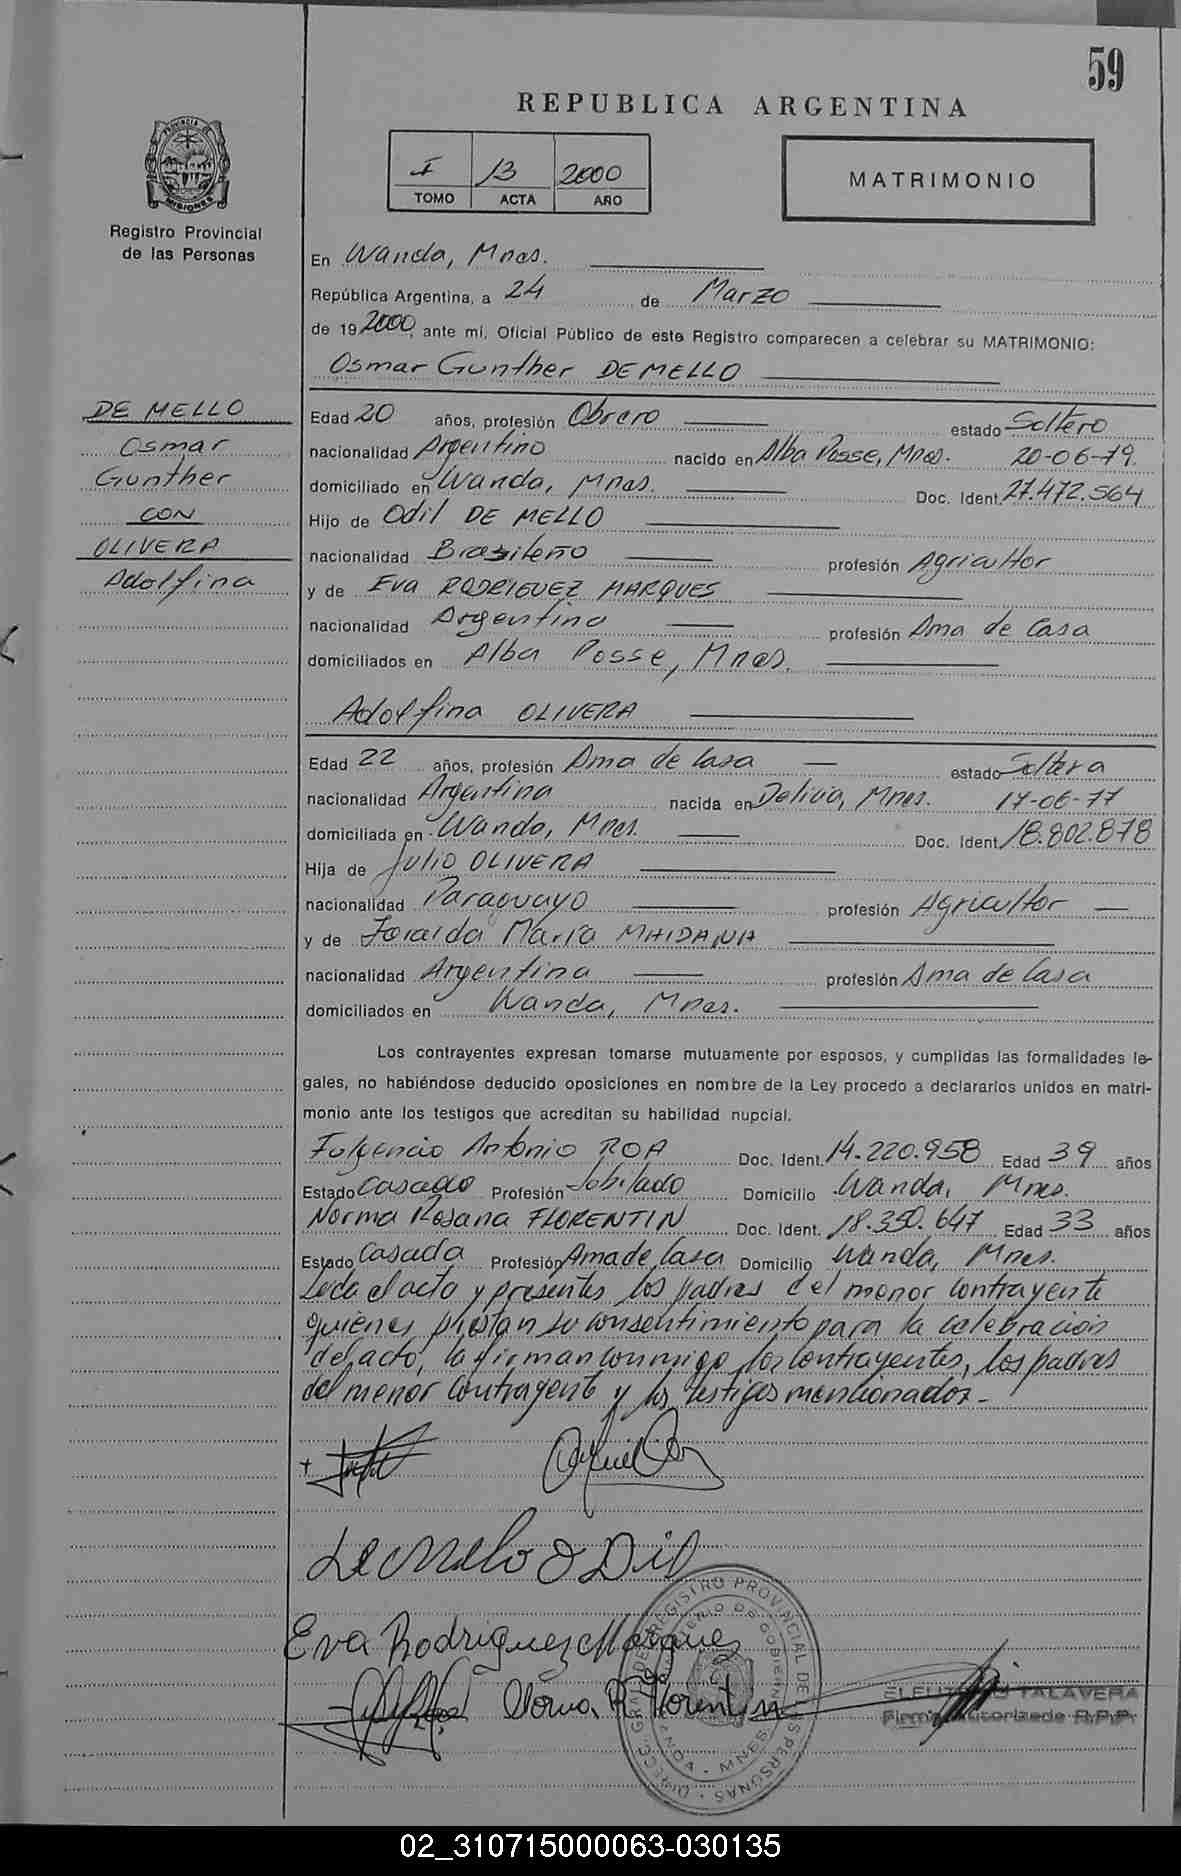 59
REPUBLICA ARGENTINA
I 13 2000
TOMO ACTA AÑO
MATRIMONIO
PROVINCIA DE
MISIONES
Registro Provincial
de las Personas
En Wanda, Mnes.
República Argentina, a 24 de Marzo
de 19 2000, ante mí, Oficial Público de este Registro comparecen a celebrar su MATRIMONIO:
Osmar Gunther DE MELLO
DE MELLO
Osmar
Gunther
CON
OLIVERA
Adolfina
Edad 20 años, profesión Obrero estado Soltero
nacionalidad Argentino nacido en Alba Posse, Mnes. 20-06-79.
domiciliado en Wanda, Mnes. Doc. Ident. 27.472.564
Hijo de Odil DE MELLO
nacionalidad Brasileño profesión Agricultor
y de Eva RODRIGUEZ MARQUES
nacionalidad Argentina profesión Ama de Casa
domiciliados en Alba Posse, Mnes.
Adolfina OLIVERA
Edad 22 años, profesión Ama de Casa estado Soltera
nacionalidad Argentina nacida en Delicia, Mnes. 17-06-77
domiciliada en Wanda, Mnes. Doc. Ident. 18.802.878
Hija de Julio OLIVERA
nacionalidad Paraguayo profesión Agricultor
y de María MAIDANA
nacionalidad Argentina profesión Ama de Casa
domiciliados en Wanda, Mnes.
Los contrayentes expresan tomarse mutuamente por esposos, y cumplidas las formalidades le-
gales, no habiéndose deducido oposiciones en nombre de la Ley procedo a declararlos unidos en matri-
monio ante los testigos que acreditan su habilidad nupcial.
Fulgencio Antonio ROA Doc. Ident. 14.220.958 Edad 39 años
Estado Casado Profesión Jubilado Domicilio Wanda, Mnes.
Norma Rosana FLORENTIN Doc. Ident. 18.350.647 Edad 33 años
Estado Casada Profesión Ama de Casa Domicilio Wanda, Mnes.
Leda el acto y presentes los padres del menor contrayente
quienes prestan su consentimiento para la celebración
del acto, la firman conmigo los contrayentes, los padres
del menor contrayente y los testigos mencionados.-
De Melo oDil
Eva Rodriguez Marques
Norma R. Florentin
ELEUTERIO TALAVERA
Firma Autorizada R.P.P.
02_310715000063-030135